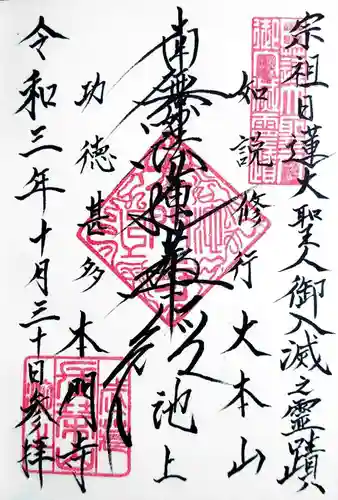 宗祖日蓮大聖人御入滅之霊蹟
如説修行
大本山
南無妙法蓮華経
池上
功徳甚多
本門寺
令和三年十月三十日参拝